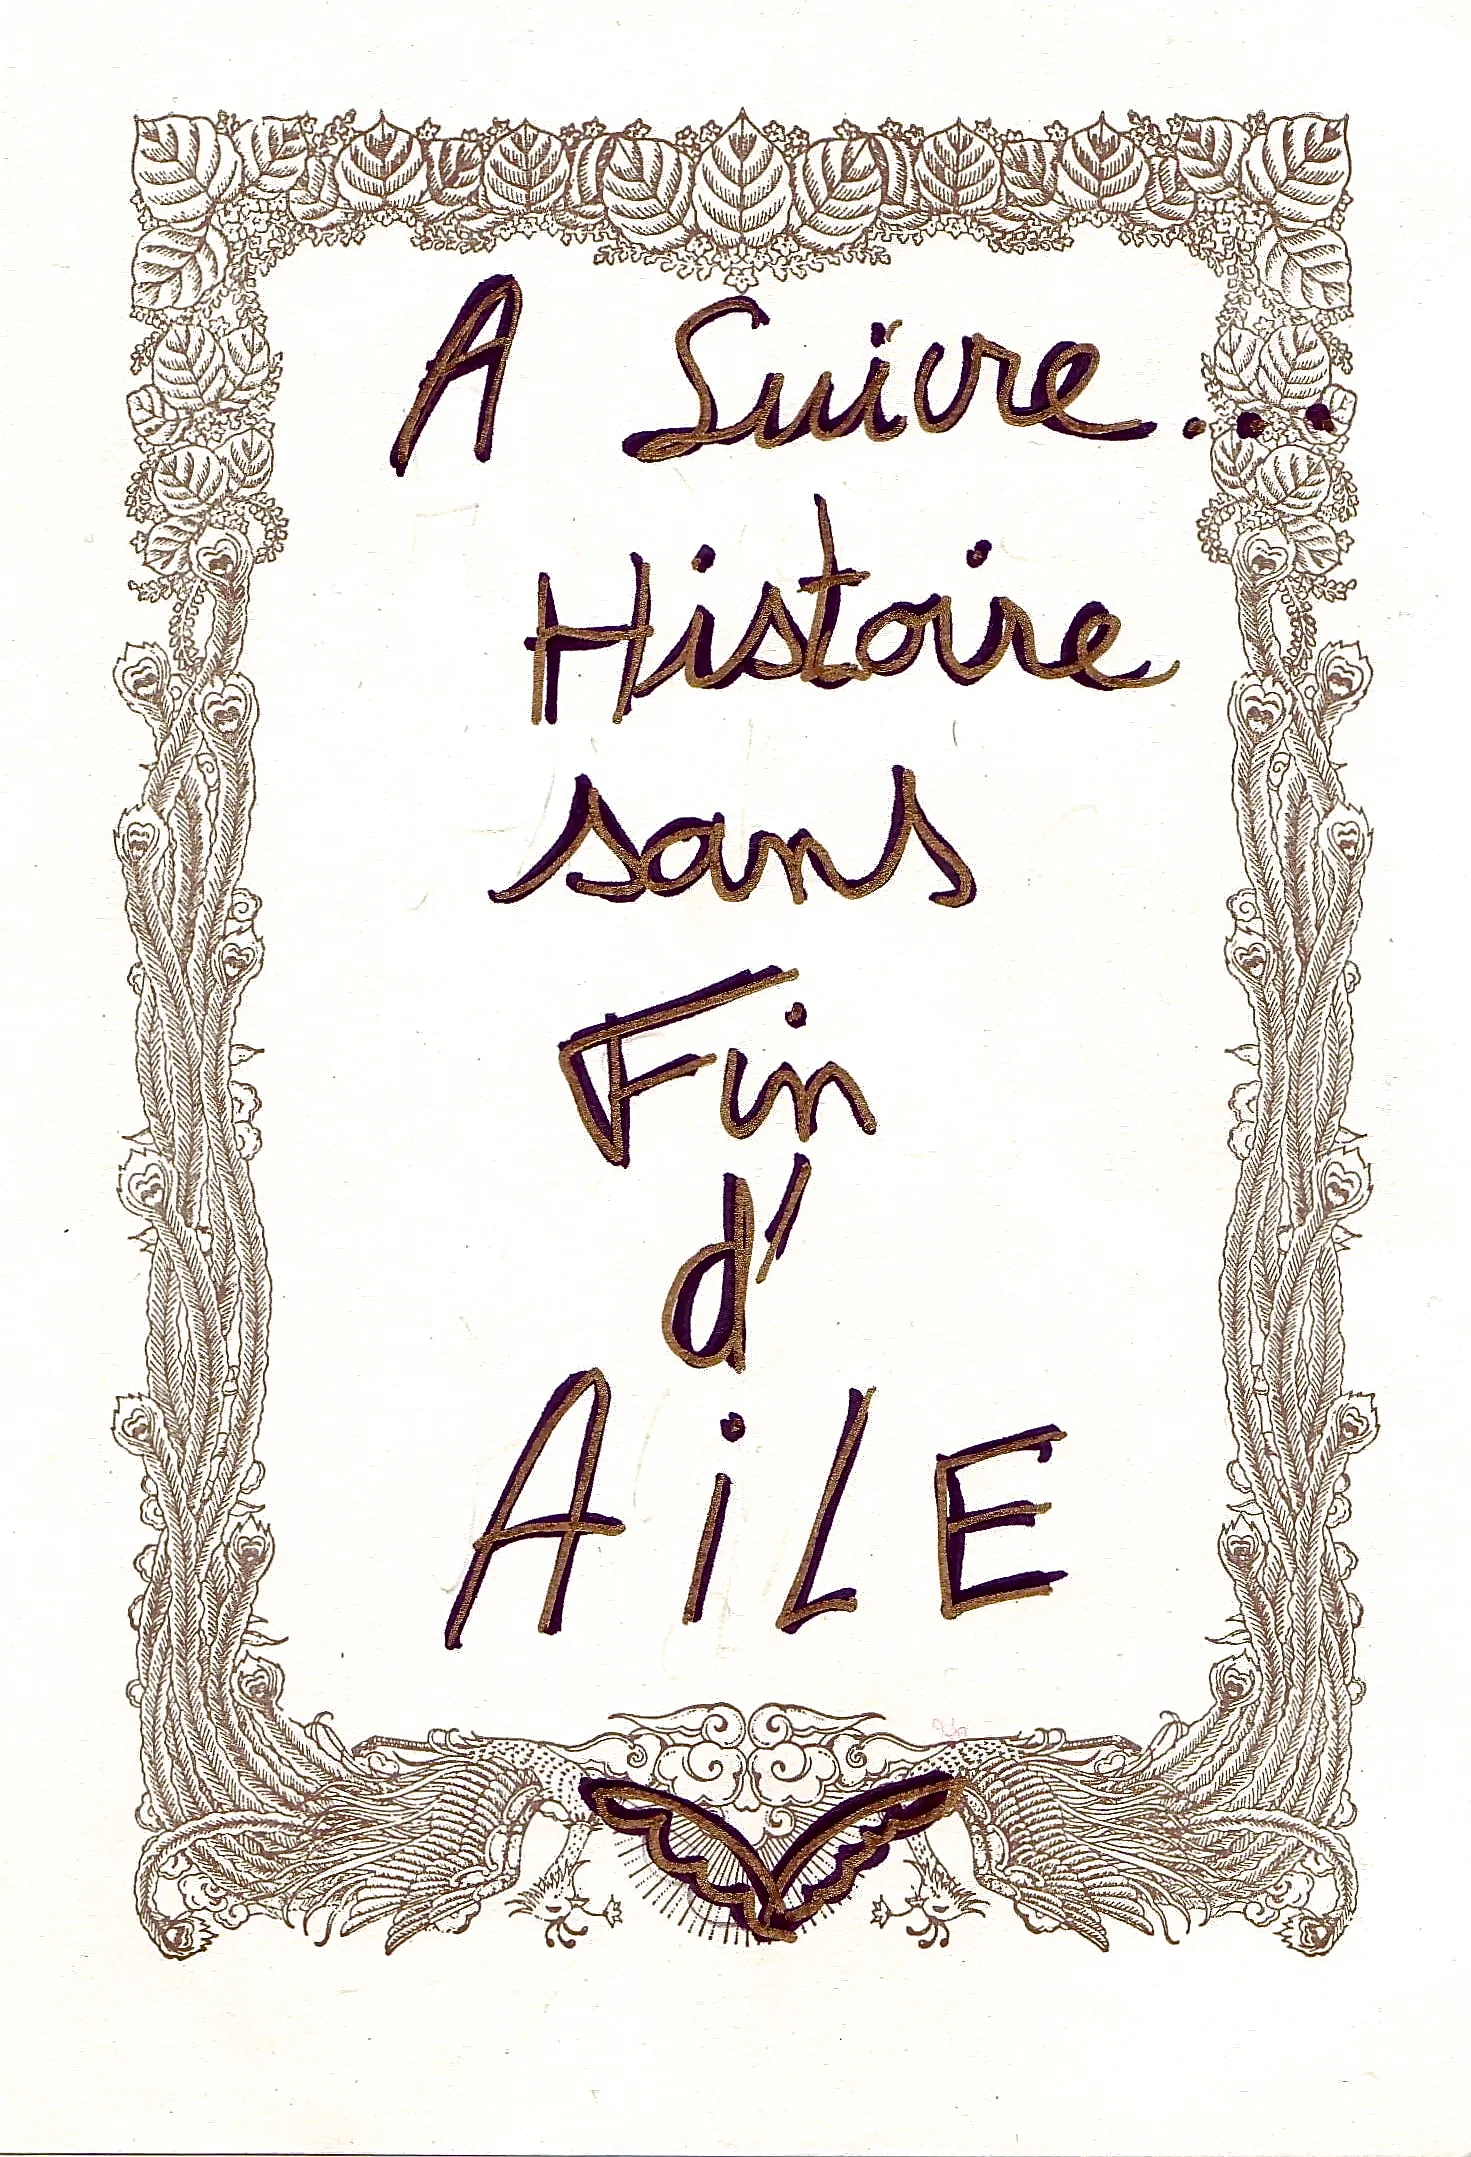 A Suivre...
Histoire
sans
Fin
d'
AiLE